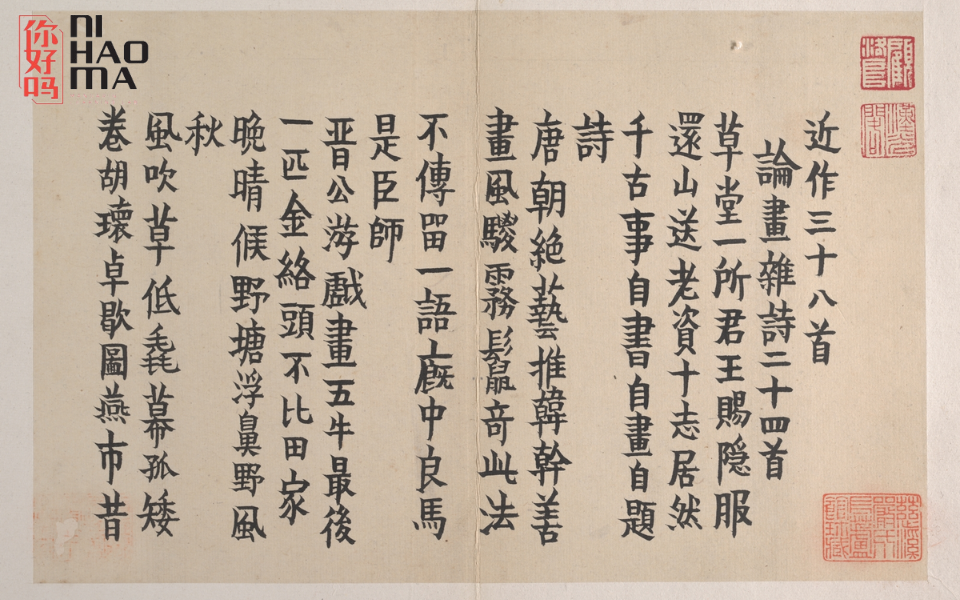 你好吗
NI
HAO
MA
近作三十八首
論畫雜詩二十四首
草堂一所君王賜隐服
還山送老資十志居然
千古事自書自畫自題
詩
唐朝絶藝推韓幹善
畫風騣霧鬛竒此法
不傳畱一語廐中良馬
是臣師
晋公游戲畫五牛最後
一匹金絡頭不比田家
晚晴候野塘浮鼻野風
秋
風吹草低毳幕孤矮
卷胡瓌卓歇圖燕市昔